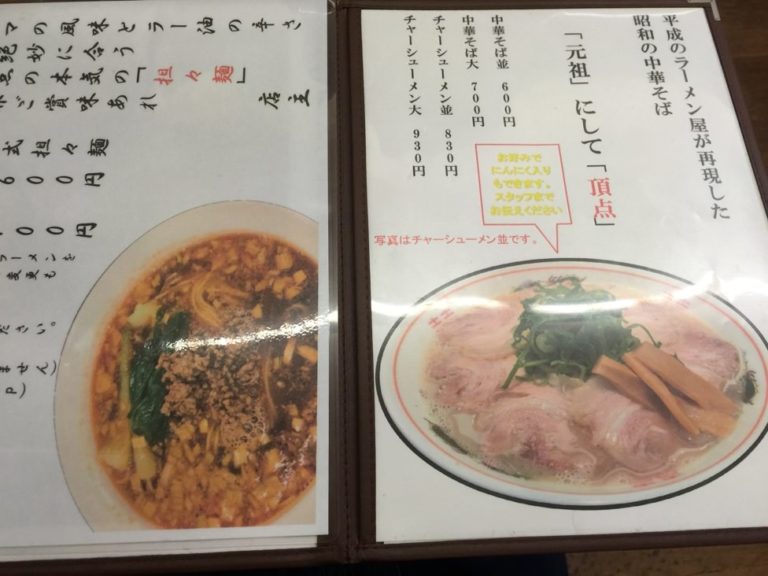 平成のラーメン屋が再現した
昭和の中華そば
「元祖」にして「頂点」
中華そば並 600円
中華そば大 700円
チャーシューメン並 830円
チャーシューメン大 930円
お好みで
にんにく入り
もできます。
スタッフまで
お伝えください
写真はチャーシューメン並です。
マの風味とラー油の辛さ
絶妙に合う
の本気の「担々麺」
ご賞味あれ
店主
式担々麺
600円
00円
ラーメンを
変更も
ださい。
ません)
P)